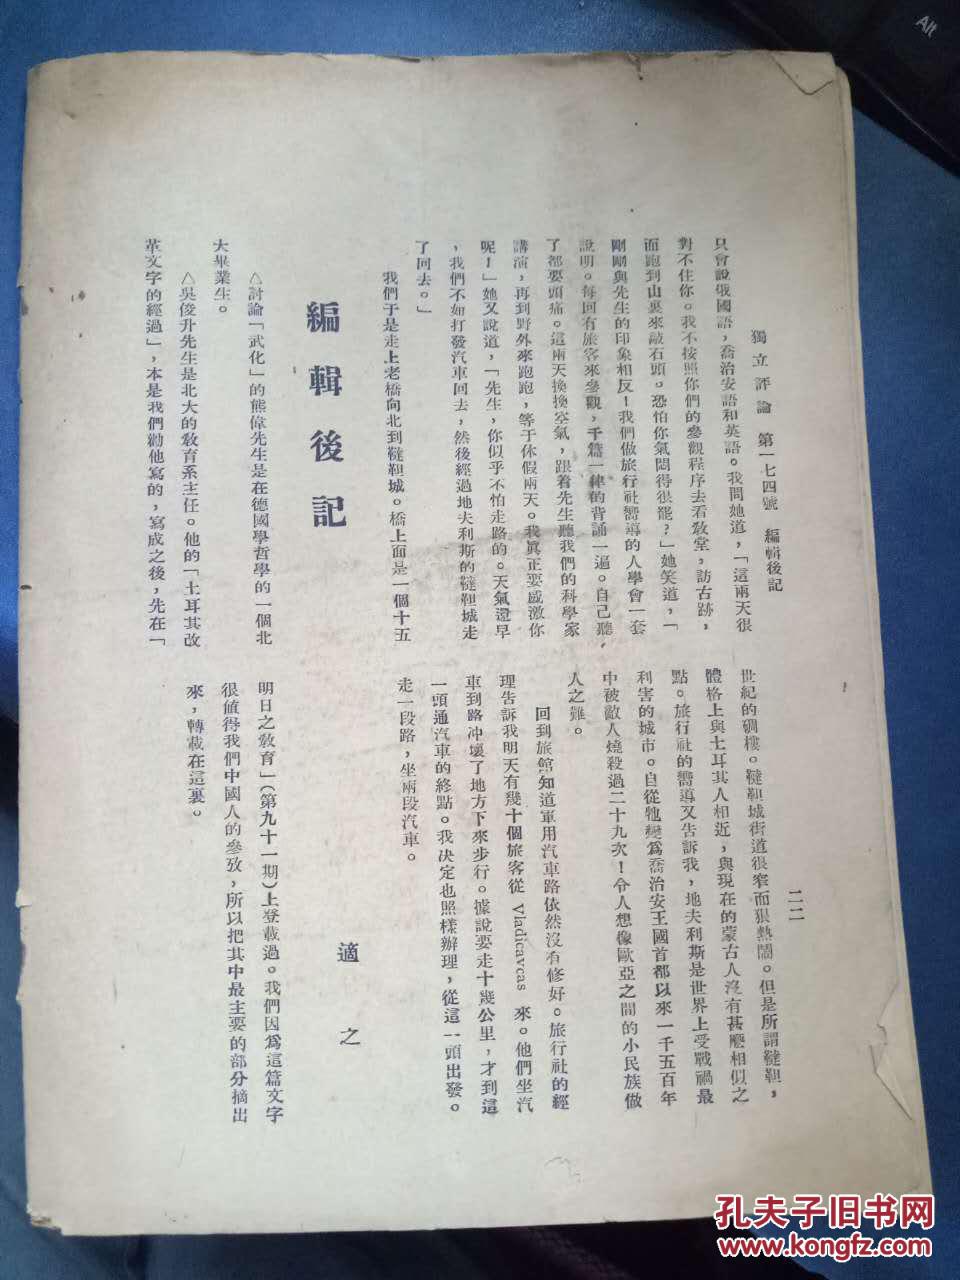 獨立評論 第一七四號 編輯後記
二二
只會說俄國語，喬治安語和英語。我問她道，「這兩天很
對不住你。我不按照你們的參觀程序去看教堂，訪古跡，
而跑到山裏來敲石頭。恐怕你氣悶得很罷？」她笑道，「
剛剛與先生的印象相反！我們做旅行社嚮導的人學會一套
說明。每回有旅客來參觀，千篇一律的背誦一遍。自己聽
了都要頭痛。這兩天換換空氣，跟着先生聽我們的科學家
講演，再到野外來跑跑，等于休假兩天。我眞正要感激你
呢！」她又說道，「先生，你似乎不怕走路的。天氣還早
，我們不如打發汽車回去，然後經過地夫利斯的韃靼城走
了回去。」
我們于是走上老橋向北到韃靼城。橋上面是一個十五
世紀的碉樓。韃靼城街道很窄而狠熱鬧。但是所謂韃靼，
體格上與土耳其人相近，與現在的蒙古人沒有甚麼相似之
點。旅行社的嚮導又告訴我，地夫利斯是世界上受戰禍最
利害的城市。自從牠變爲喬治安王國首都以來一千五百年
中被敵人燒殺過二十九次！令人想像歐亞之間的小民族做
人之難。
回到旅館知道軍用汽車路依然沒有修好。旅行社的經
理告訴我明天有幾十個旅客從 Vladicavcas 來。他們坐汽
車到路冲壞了地方下來步行。據說要走十幾公里，才到這
一頭通汽車的終點。我決定也照樣辦理，從這一頭出發。
走一段路，坐兩段汽車。
編輯後記
適之
△討論「武化」的熊偉先生是在德國學哲學的一個北
大畢業生。
△吳俊升先生是北大的教育系主任。他的「土耳其改
革文字的經過」，本是我們勸他寫的，寫成之後，先在「
明日之教育」（第九十一期）上登載過。我們因爲這篇文字
很値得我們中國人的參攷，所以把其中最主要的部分摘出
來，轉載在這裏。
Alt
孔夫子旧书网
www.kongfz.com